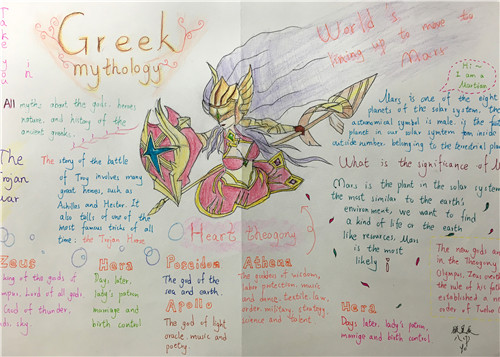 Take
you
in
Greek
mythology
World's
lining up to move to
Mars
Hi~
I am a
Martian
All myths about the gods, heroes
nature, and history of the
ancient greeks.
Mars is one of the eight
planets of the solar system, the
astronomical symbol is male. is the
planet in our solar system from inside
outside number. belonging to the terrestrial
The
Trojan
War
The story of the battle
of Troy involves many
great heroes, such as
Achilles and Hector. It
also tells of one of the
most famous tricks of all
time: the Trojan Horse
What is the significance of
Mars is the plant in the solar system
the most similar to the earth's
environment, we want to find
a kind of life or the earth
like resources, Mars
is the most
likely
Heart theogony
Zeus
king of the gods of
Lord of all gods
god of thunder,
sky
Hera
Days later,
lady's patron,
marriage and
birth control
Poseidon
The god of the
sea and earth.
Apollo
The god of light
oracle, music and
poetry.
Athena
The goddess of wisdom,
labor protection, music
and dance, textile, law,
order, military, strategy
science and talent
Hera
Days later, lady's patron,
marriage and birth control
The new gods
in the Theogony
Olympus, Zeus
the rule of his
established a
order of Twelve